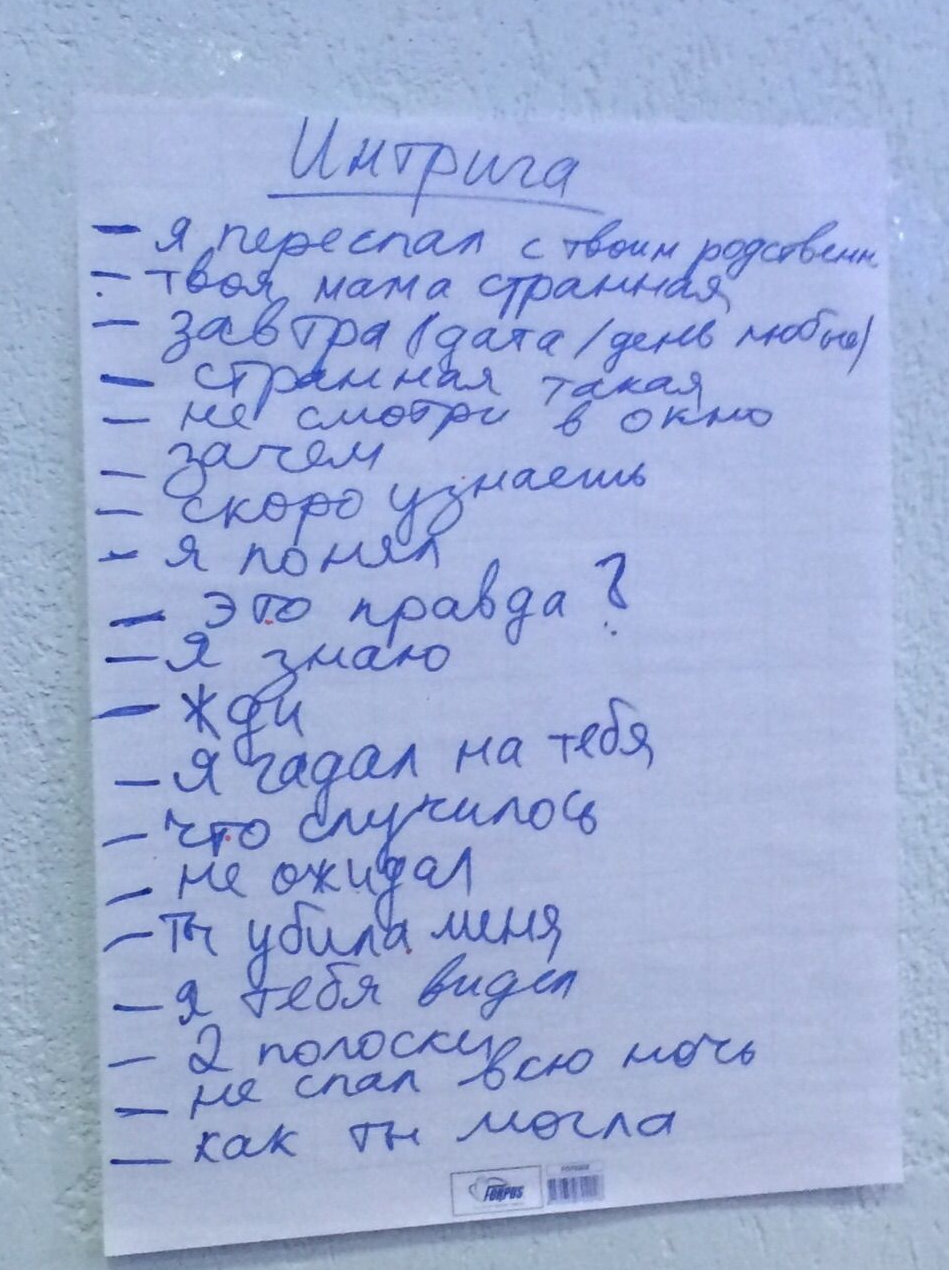 Интрига
— я переспал с твоим родственн
— твоя мама странная
— завтра (дата/день любые)
— странная такая
— не смотри в окно
— зачем
— скоро узнаешь
— я понял
— это правда?
— Я знаю
— Жди
— Я гадал на тебя
— что случилось
— не ожидал
— ты убила меня
— я тебя видел
— 2 полоски
— не спал всю ночь
— как ты могла
FORPUS